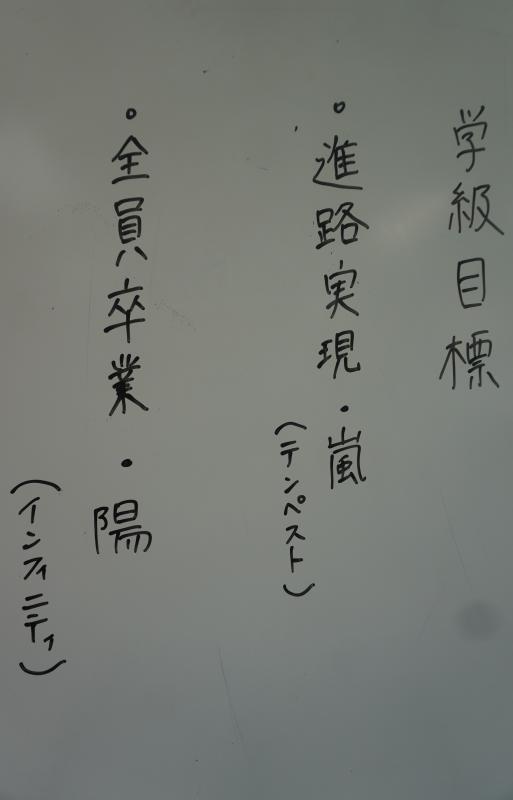 学級目標
。進路実現・嵐
(テンペスト)
。全員卒業・陽
(インフィニティ)